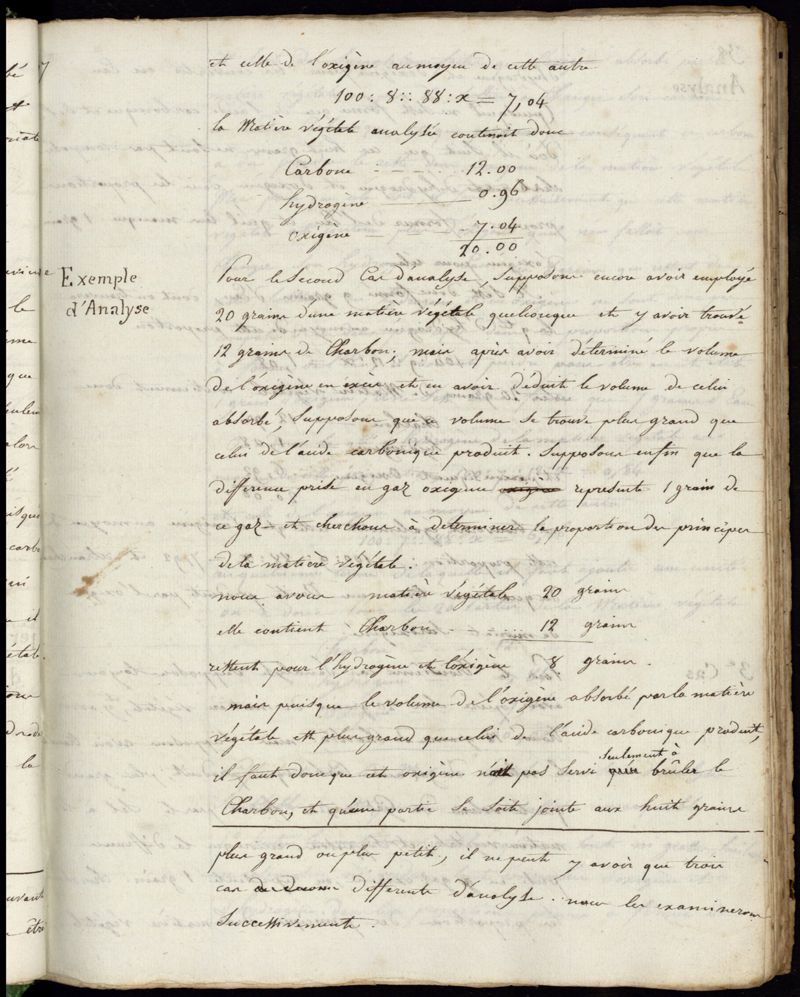 et celle de l'oxigène au moyen de cette autre
100 : 8 :: 88 : x = 7,04
la Matière végétale analysée contenoit donc
Carbone - - - - 12.00
hydrogène 0.96
oxigène - 7.04
20.00
Exemple
d'Analyse
Pour le Second Cas d'analyse, Supposons encore avoir employé
20 grains d'une matière végétale quelconque et y avoir trouvé
12 grains de Charbon; mais après avoir déterminé le volume
de l'oxigène en excès et en avoir déduit le volume de celui
absorbé, Supposons que ce volume se trouve plus grand que
celui de l'acide carbonique produit. Supposons enfin que la
différence prise en gaz oxigène oxigène represente 1 grain de
ce gaz et cherchons à determiner la proportion des principes
de la matière végétale.
nous avons matière végétale 20 grains
elle contient Charbon - 12 grains
restent pour l'hydrogène et l'oxigène 8 grains.
mais puisque le volume de l'oxigène absorbé par la matière
végétale est plus grand que celui de l'acide carbonique produit,
il faut donc que cet oxigène n'ait pas servi seulement à brûler le
Charbon, et qu'une partie se soit jointe aux huit grains
plus grand ou plus petit, il ne peut y avoir que trois
cas differents d'analyse. nous les examinerons
Successivement.